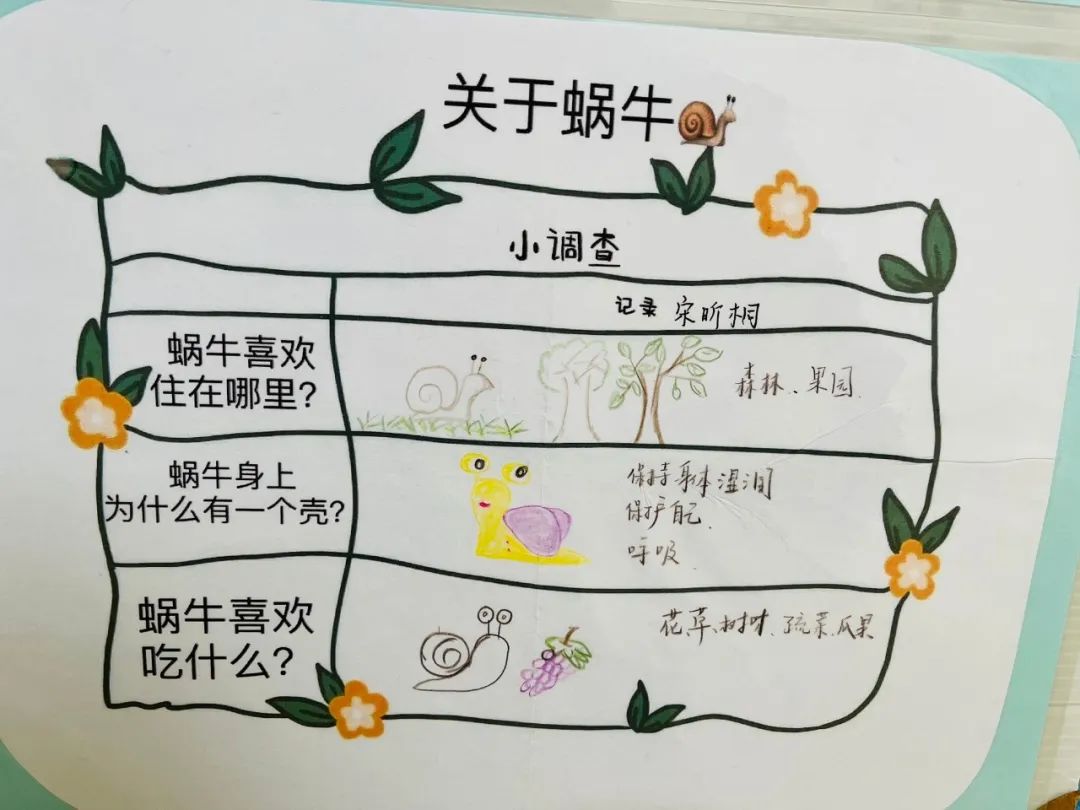 关于蜗牛
小调查
记录 宋昕桐
蜗牛喜欢
住在哪里?
森林、果园
蜗牛身上
为什么有一个壳?
保持身体湿润
保护自己
呼吸
蜗牛喜欢
吃什么?
花草、树叶、蔬菜、瓜果